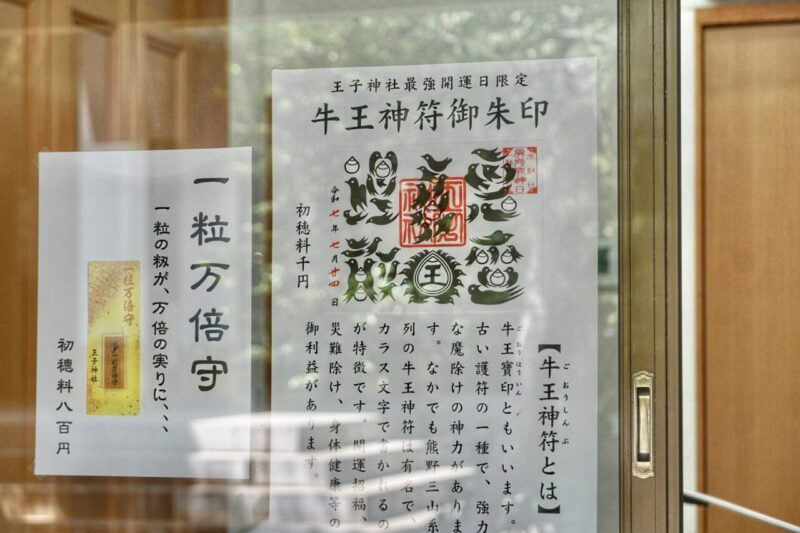 王子神社最強開運日限定
牛王神符御朱印
令和七年七月廿四日
初穂料千円
王
【牛王神符とは】
ごおうしんぷ
牛王寶印ともいいます。
ごおうほういん
古い護符の一種で、強力
な魔除けの神力がありま
す。なかでも熊野三山系
列の牛王神符は有名で、
カラス文字で書かれるの
が特徴です。開運招福、
災難除け、身体健康等の
御利益があります。
一粒万倍守
一粒の籾が、万倍の実りに、、、
一粒万倍守
王子神社
初穂料八百円